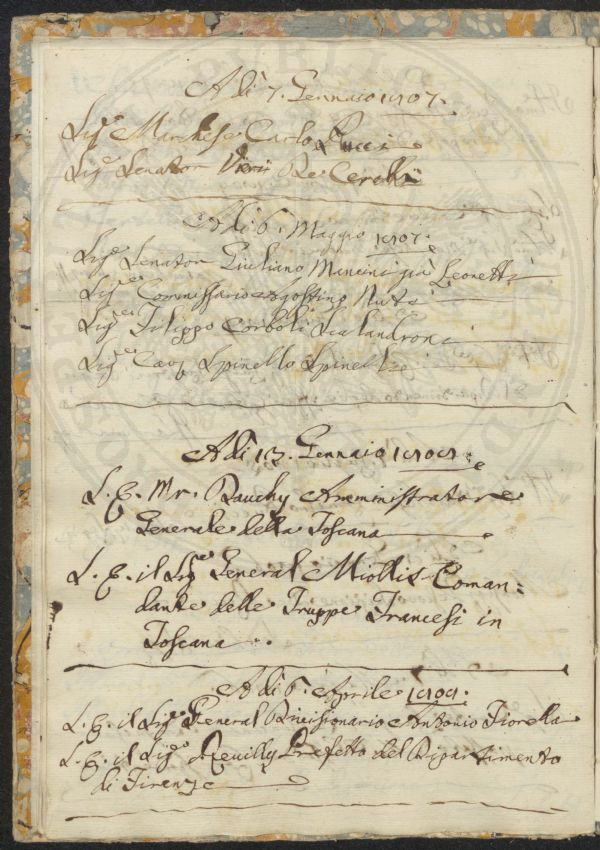 A dì 7. Gennaio 1807.
Sig.e Marchese Carlo Pucci
Sig.e Senator Vieri De Cerchi
A dì 6. Maggio 1807.
Sig.e Senator Giuliano Mancini già Leonetti
Sig.e Commissario Agostino Nuti
Sig.e Filippo Corboli Scalandroni
Sig.e Cav. Spinello Spinelli
A dì 13. Gennaio 1808.
S. E. Mr. Dauchy Amministratore
Generale della Toscana
S. E. il Sig.e General Miollis Coman:
dante delle Truppe Francesi in
Toscana
A dì 6. Aprile 1808.
S. E. il Sig.e General Divisionario Antonio Fiorella
S. E. il Sig.e Reuilly Prefetto del Dipartimento
di Firenze